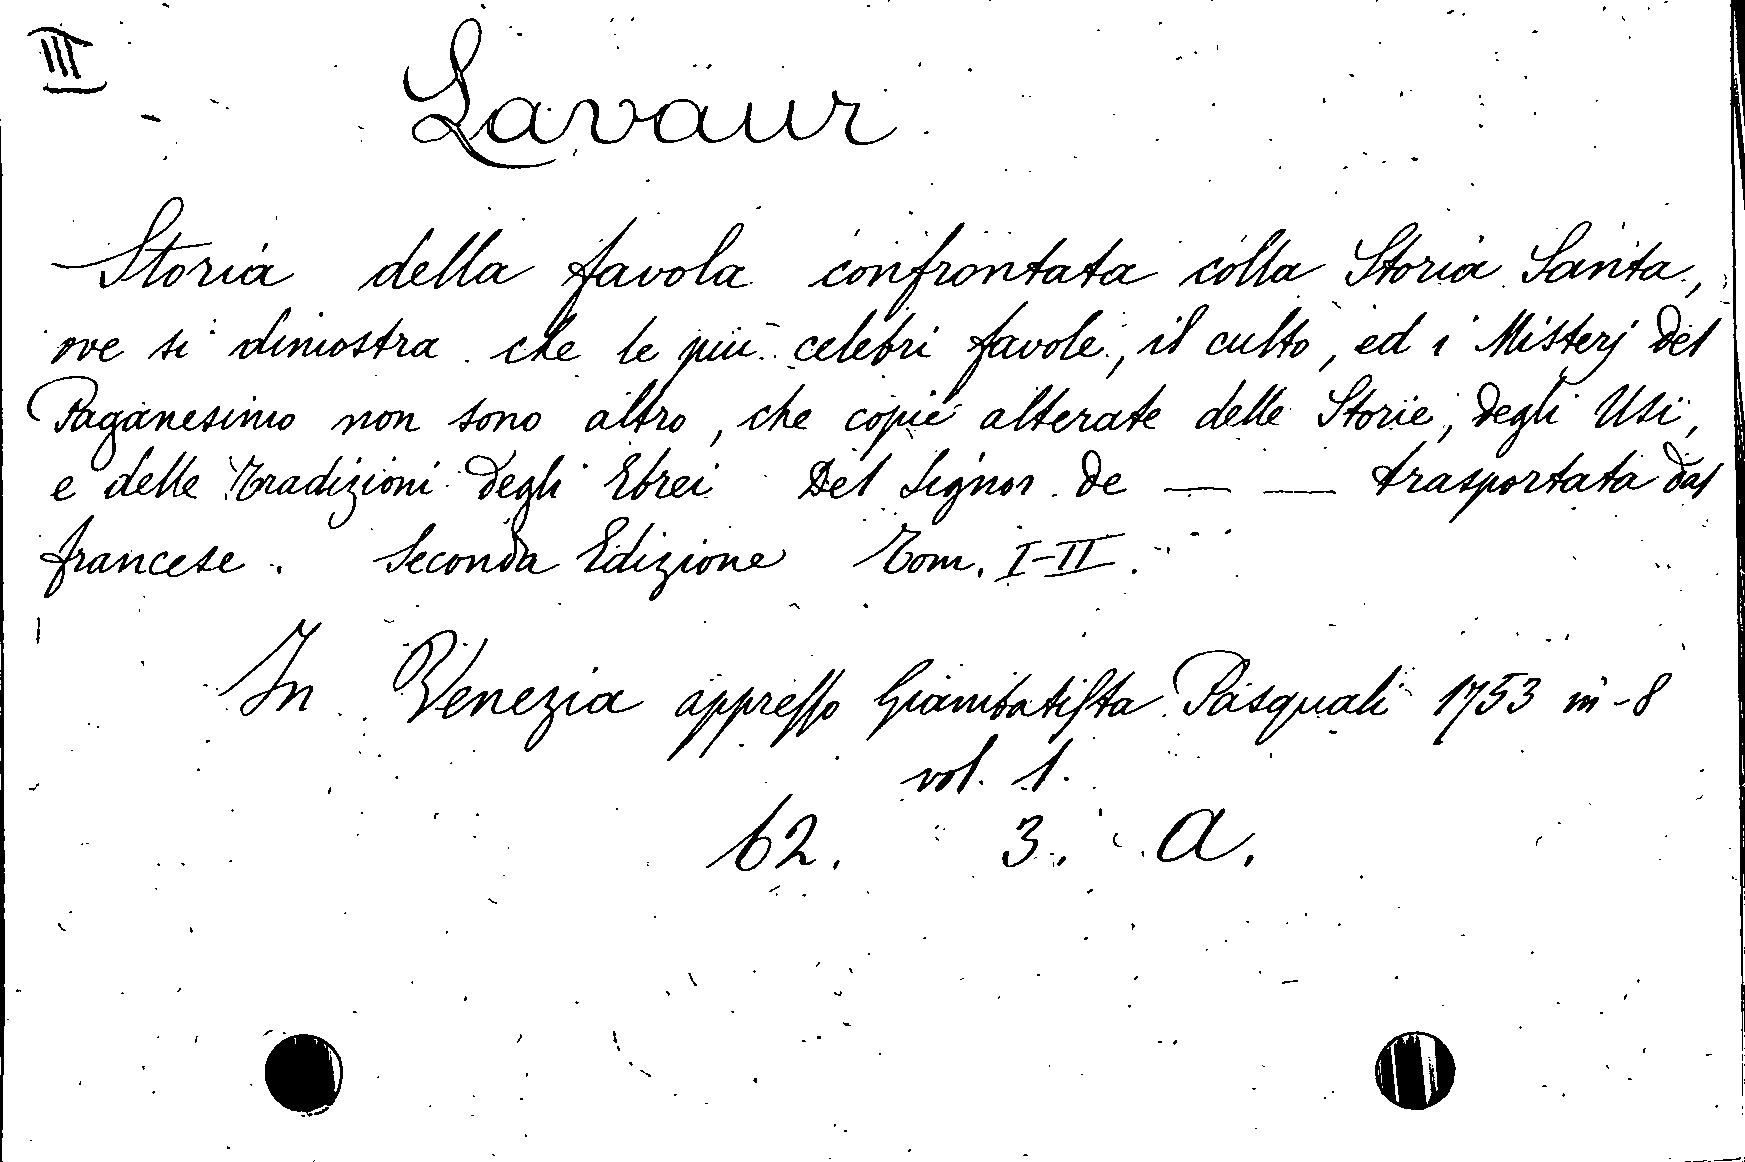 III
Lavaur
Storia della favola confrontata colla Storia Santa,
ove si dimostra che le più celebri favole, il culto, ed i Misterj del
Paganesimo non sono altro, che copie alterate delle Storie, degli Usi,
e delle Tradizioni degli Ebrei Del Signor de — — trasportata dal
francese. Seconda Edizione Tom. I-II.
In Venezia appresso Giambatista Pasquali 1753 in-8
vol. 1.
62. 3. A.